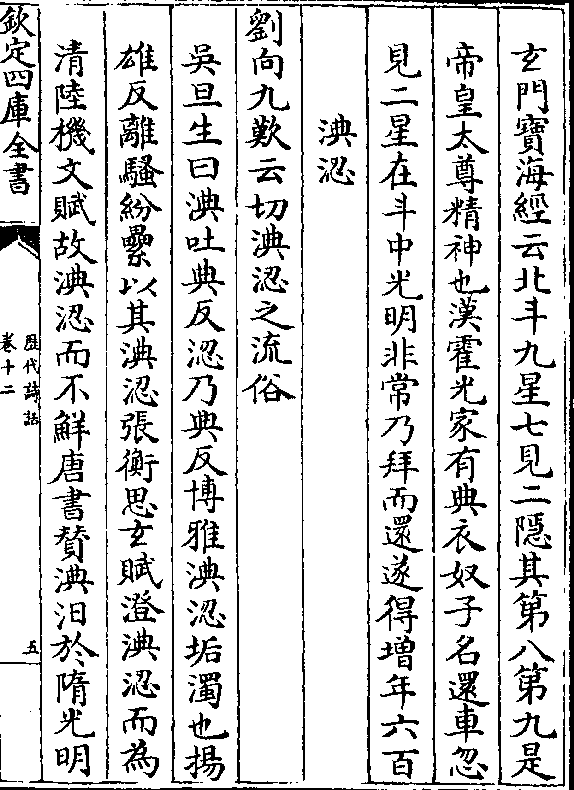 玄門寶海經云北斗九星七見二隱其第八第九是
帝皇太尊精神也漢霍光家有典衣奴子名還車忽
見二星在斗中光明非常乃拜而還遂得增年六百
淟涊
劉向九歎云切淟涊之流俗
吳旦生曰淟吐典反涊乃典反博雅淟涊垢濁也揚
雄反離騷紛纍以其淟涊張衡思玄賦澄淟涊而為
清陸機文賦故淟涊而不鮮唐書贊淟汨於隋光明
欽定四庫全書
歷代詩話
卷十二
五